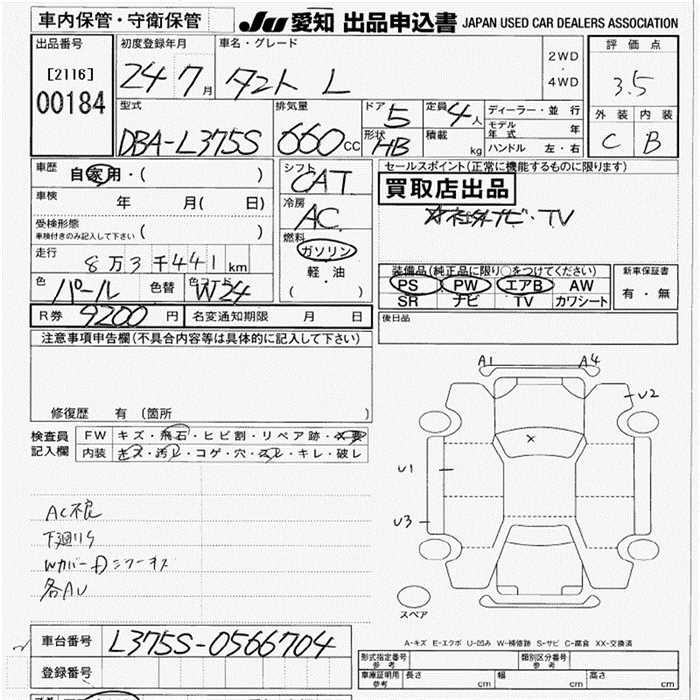 車内保管・守衛保管 JU 愛知 出品申込書 JAPAN USED CAR DEALERS ASSOCIATION
出品番号
[2116]
00184
初度登録年月
24 7 月
車名・グレード
タント L
2WD
・
4WD
評価点
3.5
外装 内装
C B
型式
DBA-L375S
排気量
660 CC
ドア 5
形状 HB
定員 4 人
積載 kg
ディーラー・並行
モデル年式 年
ハンドル 左・右
車歴 自家用・( )
車検 年 月( 日)
受検形態
車検付きのみ記入して下さい ( )
走行
8万3千441 km
色 パール 色替 色コード W24
R券 9200 円 名変通知期限 月 日
シフト
CAT
冷房
AC
燃料
ガソリン
軽・油
( )
セールスポイント(正常に機能するものに限ります)
買取店出品
☆社外ナビ・TV
装備品(純正品に限り○をつけてください)
PS PW エアB AW
SR ナビ TV カワシート
新車保証書
有・無
後日品
注意事項申告欄(不具合内容等は具体的に記入して下さい)
修復歴 有(箇所 )
検査員記入欄
FW キズ・飛石・ヒビ割・リペア跡・X要
内装 キズ・汚レ・コゲ・穴・スレ・キレ・破レ
AC不良
下廻りS
各AU
A1 A4
U2
X
U1
U3
スペア
A-キズ E-エクボ U-凹み W-補修跡 S-サビ C-腐食 XX-交換済
車台番号 L375S-0566704
登録番号
形式指定番号 参考
類別区分番号 参考
車庫証明用 参考 長さ cm 幅 cm 高さ cm